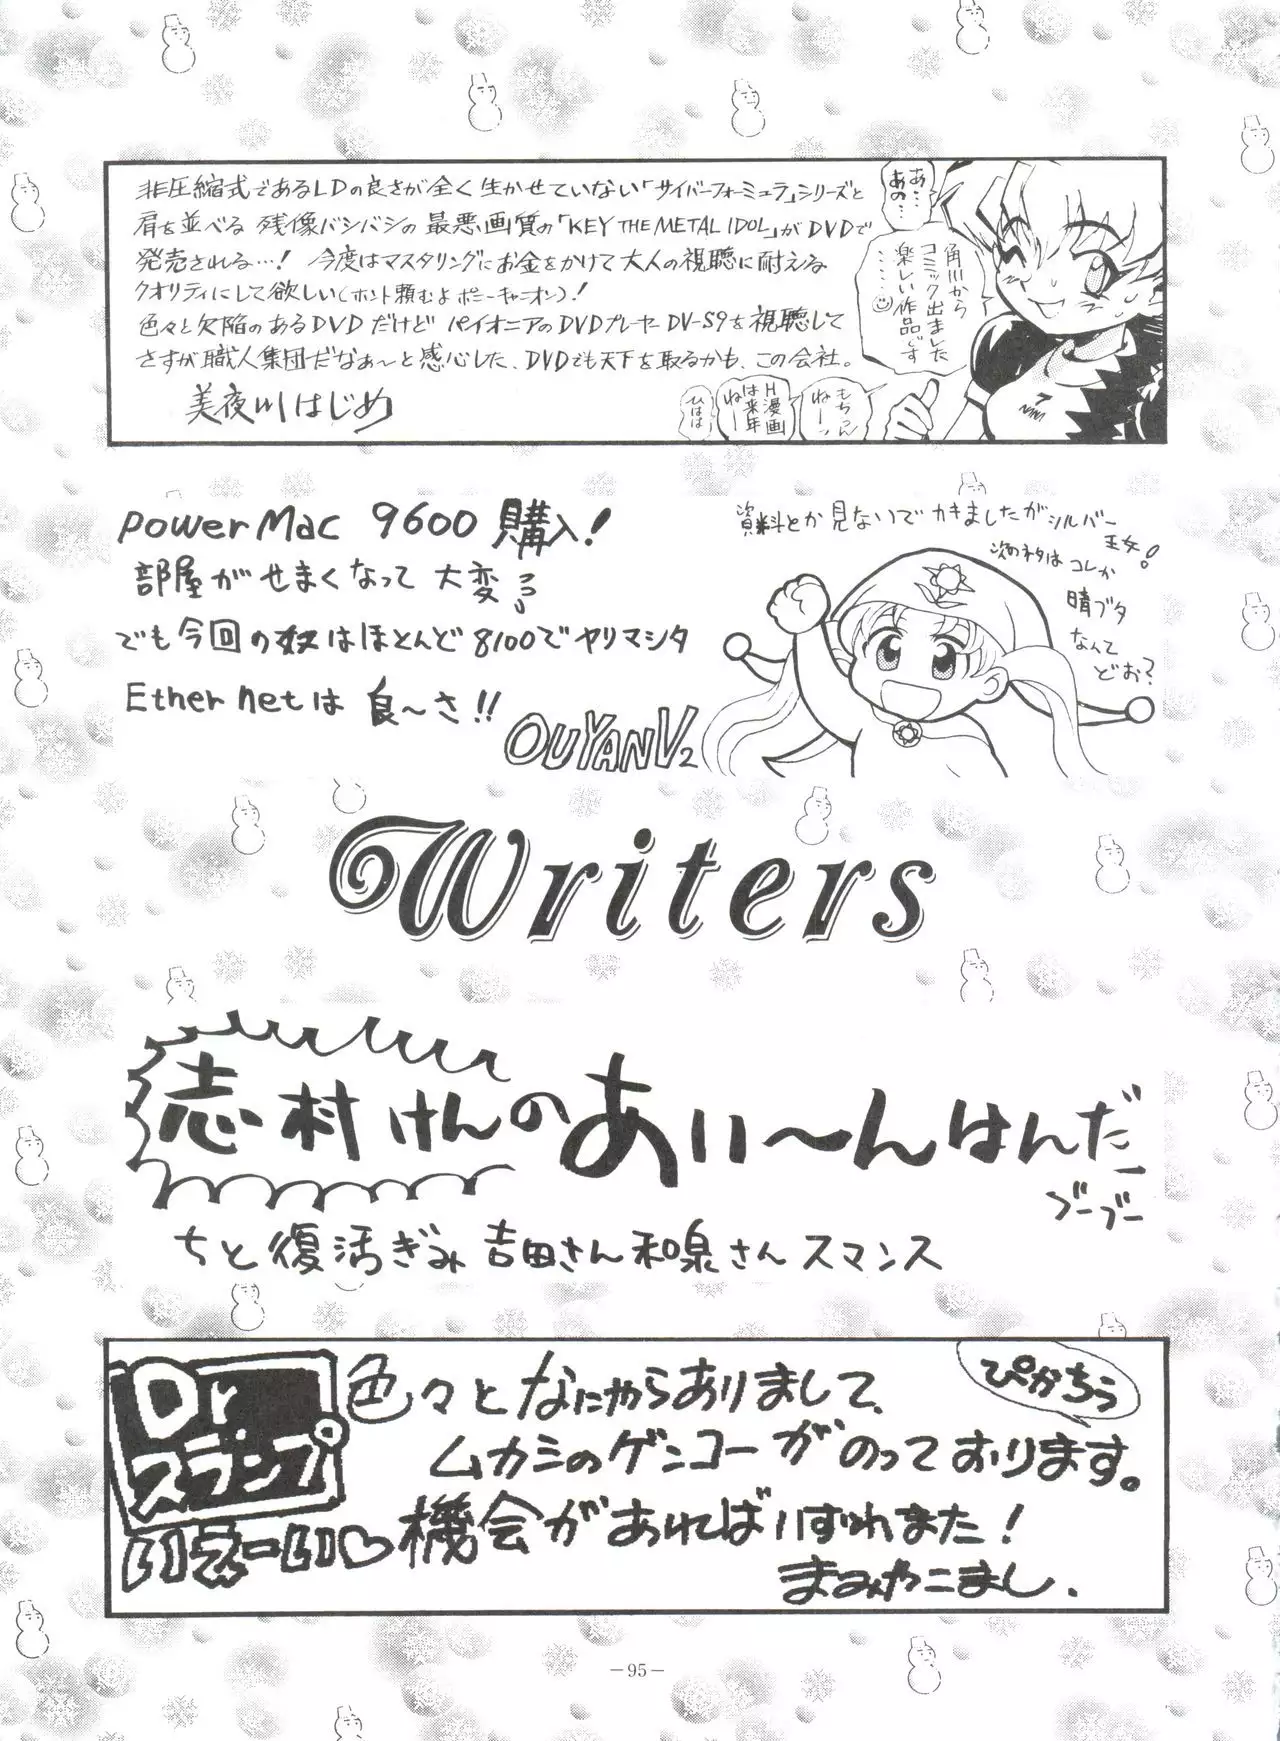 非圧縮式であるLDの良さが全く生かせていない「サイバーフォーミュラ」シリーズと
肩を並べる 残像バシバシの最悪画質の「KEY THE METAL IDOL」がDVDで
発売される…! 今度はマスタリングにお金をかけて大人の視聴に耐える
クオリティにして欲しい(ホント頼むよポニーキャニオン)!
色々と欠陥のあるDVDだけど パイオニアのDVDプレーヤーDV-S9を視聴して
さすが職人集団だなぁ〜と感心した、DVDでも天下を取るかも、この会社。
美夜川はじめ
あ…
あの…
角川から
コミック出ました
楽しい作品です
……☺
もちろん
ねーッ
H漫画
は来年
ねー
ひはは
power Mac 9600 購入!
部屋がせまくなって 大変
でも今回の奴はほとんど8100でヤリマシタ
Ether netは 良〜さ!!
OUYANV2
資料とか見ないでかきましたがシルバー
王女!
次のネタは コレか
晴ブタ
なんて
どお?
Writers
志村けんのあぃ〜んはんだー
ブーブー
ちと復活ぎみ 吉田さん和泉さんスマンス
Dr
スランプ
色々となにやらありまして、
ぴかちう
ムカシのゲンコーがのっております。
機会があればいずれまた!
まみやこまし.
—95—